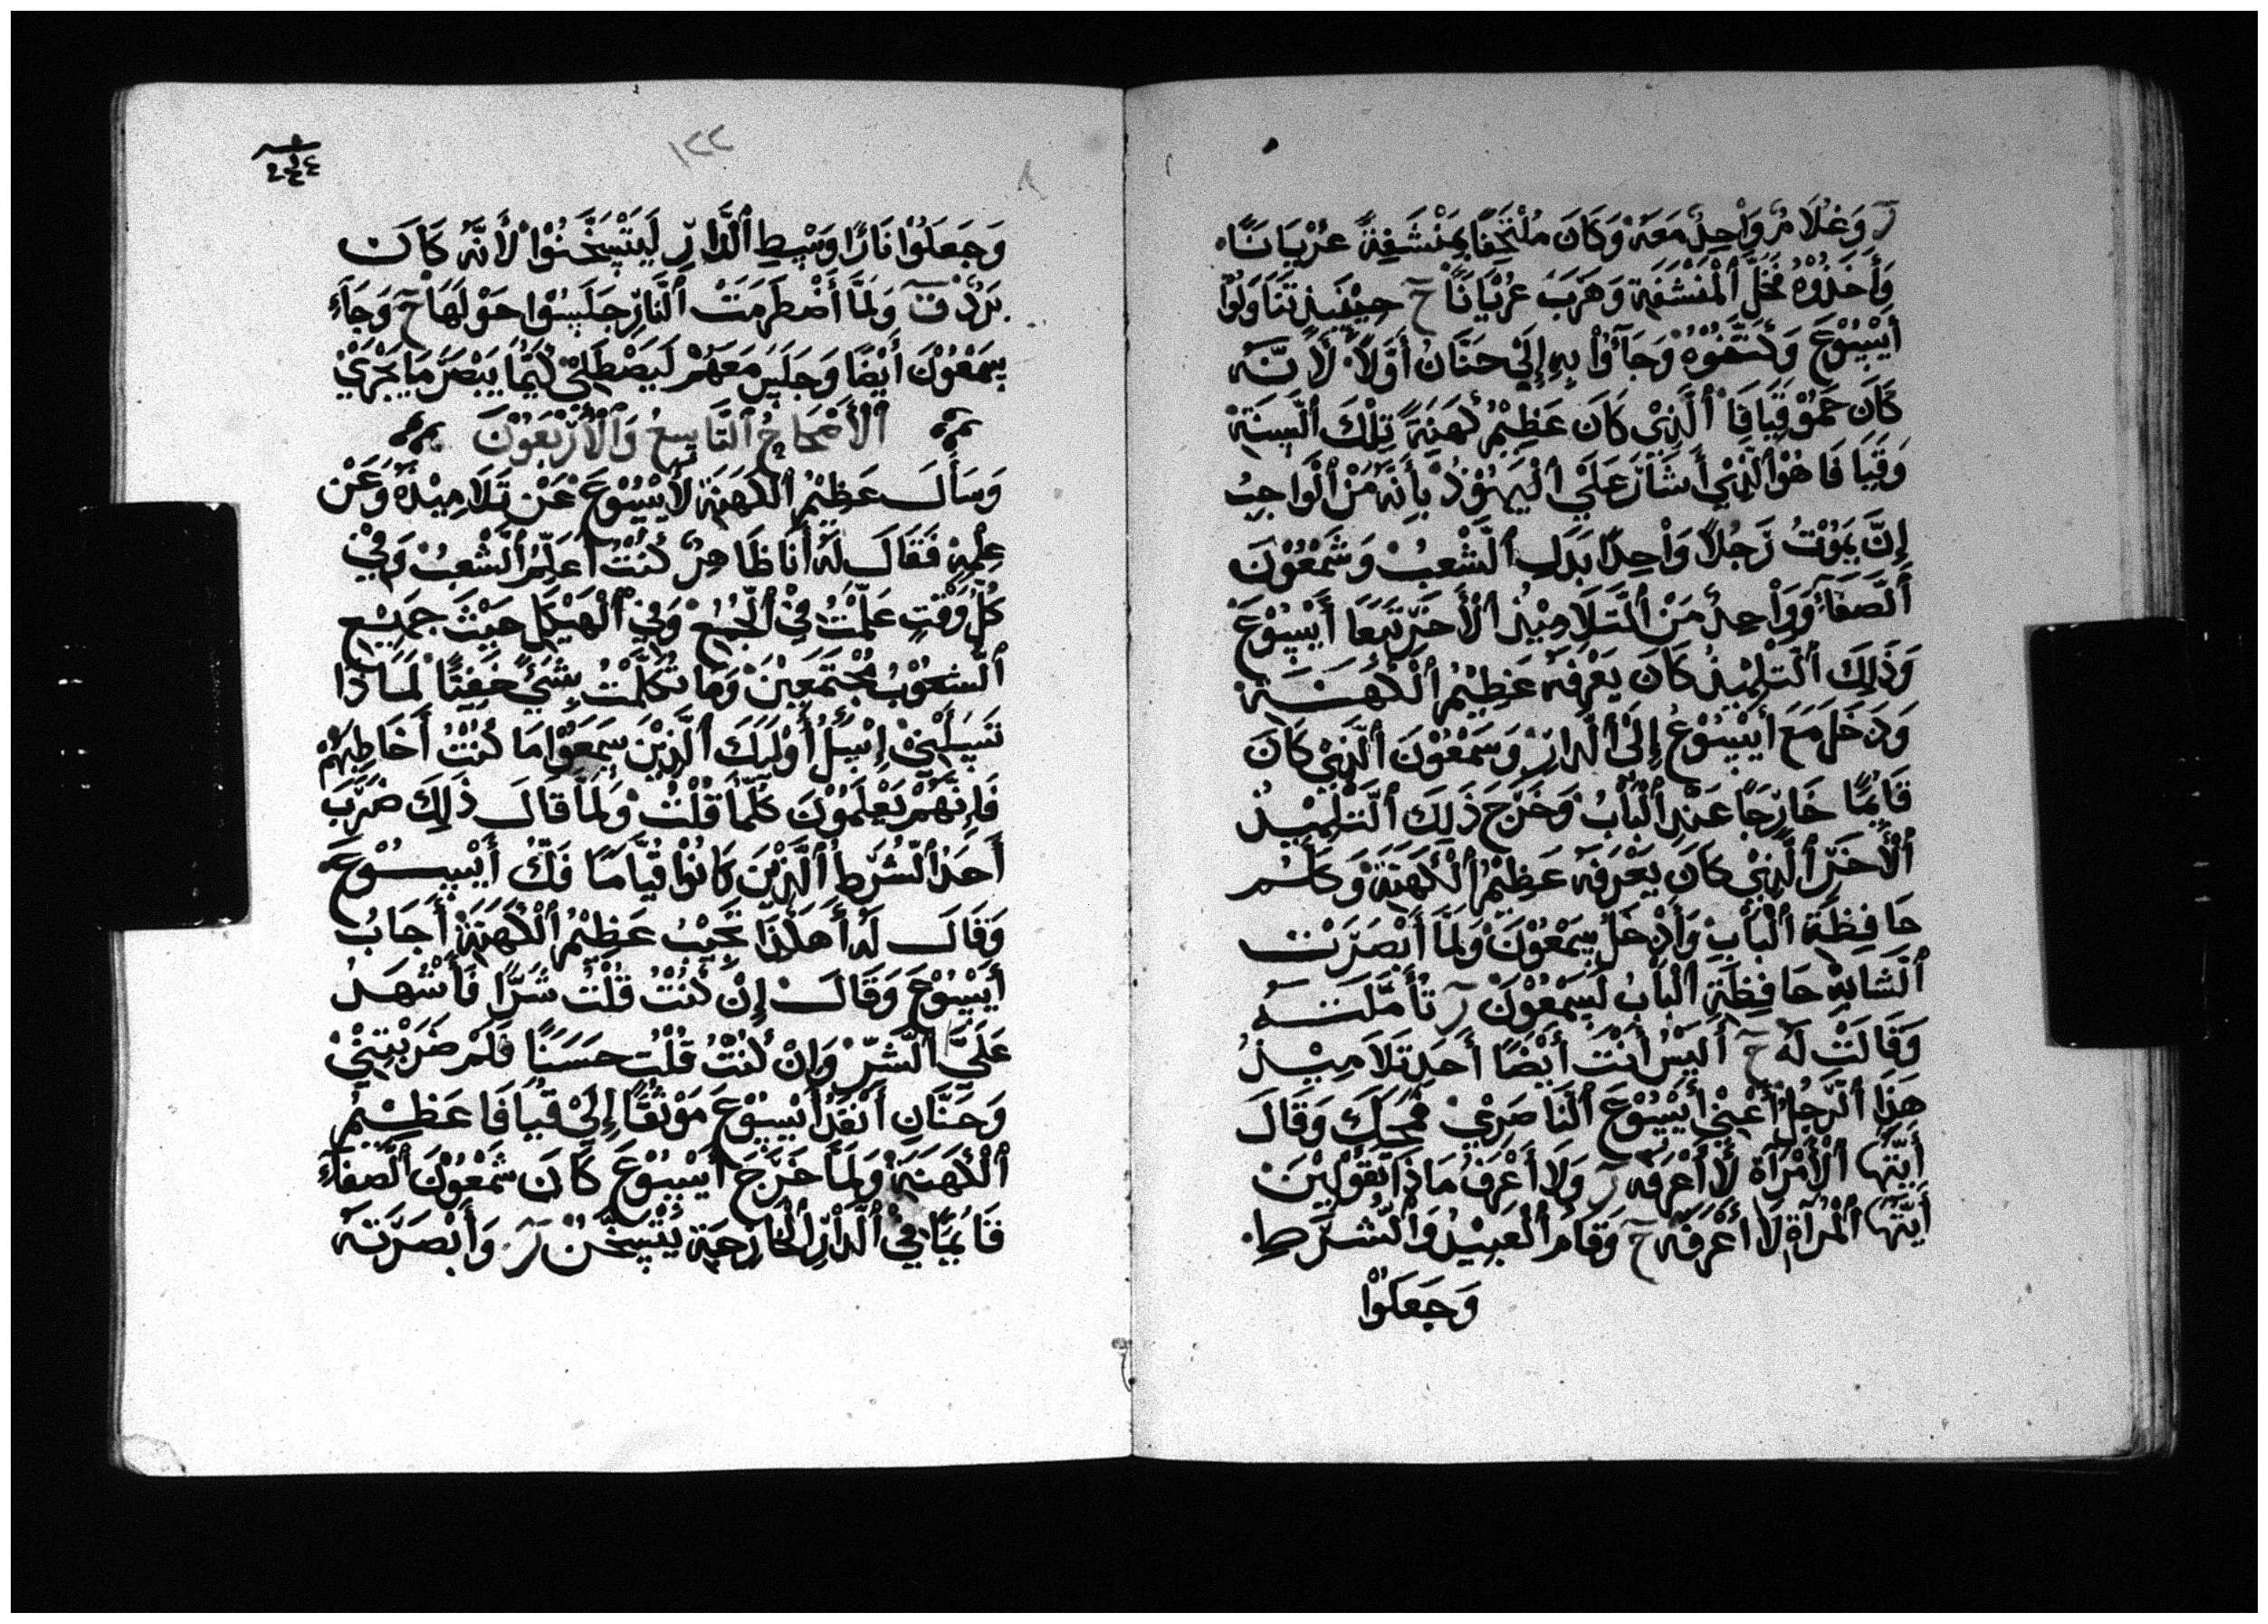 ر وَغُلَامٌ وَاْحِدٌ مَعَهُ وَكَانَ مُلْتَحِفًا بِمَنْشَفِةً عُرْيَانًا
وَأَخَذُوْهُ فَخَلَّ ٱلْمَنْشَفَةِ وَهَرَبَ عُرْيَانًا حَ حِيْنَيذٍ تَنَاوَلُوْا
أَيْسُوْعَ وَكَتَّفُوْهُ وَجَآءُوْا بِهِ إِلَىْ حَنَّانُ أَوَّلًا لَأَنَّهُ
كَانَ حَمُوْ قَيَافَا ٱلَّذِيْ كَانَ عَظِيْمُ كَهَنَةَ تِلْكَ ٱلسَّنَةْ
وَقَيَافَا هُوَ ٱلَّذِيْ أَشَارَ عَلَىْ ٱلْيَهُوْدُ بِأَنَّهُ مَنْ ٱلْوَاجِبُ
إِنَّ يَمُوْتُ رَجُلًا وَاْحِدًا بَدَلِ ٱلشَّعْبُ وَشَمْعُوْنَ
ٱلصَّفَآءَ وَوَاْحِدٌ مَنْ ٱلتَّلَامِيْذِ ٱلْأَخَرِ تَبَعَا أَيْسُوْعَ
وَذَلِكَ ٱلتَلْمِيْذُ كَانَ يَعْرِفَهُ عَظِيْمُ ٱلْكَهَنَةَ
وَدَخَلَ مَعَ أَيْسُوْعُ إِلَىْ ٱلدَارِ وَسَمْعُوْنَ ٱلَّذِيْ كَانَ
قَايْمًا خَارِجًا عَنْدِ ٱلْبَابُ وَخَرَجَ ذَلِكَ ٱلتَّلْمِيْذُ
ٱلْأَخَرِ ٱلَّذِيْ كَانَ يَعْرَفَهُ عَظِيْمُ ٱلْكَهَنَةْ وَكَلَّمُ
حَافِظَةِ ٱلْبَابِ وَأَدْخَلَ سَمْعُوْنَ وَلَمَّا أَبْصَرَتْ
ٱلْشَابَةِ حَافِظَةِ ٱلْبَابُ لَسَمْعُوْنَ ر تَأَمَّلَتْهُ
وَقَالَتْ لَهُ حَ أَلَيْسُ أَنْتَ أَيْضًا أَحَدِ تَلَامِيْذُ
هَذَا ٱلرَّجُلُ أَعْنِيْ أَيْسُوْعَ ٱلنَاصَرِيْ فَجَحَدَ وَقَالَ
أَيَّتُهَا ٱلْأَمْرَآةَ لَا أَعْرَفَهُ ر وَلَا أَعْرَفُ مَاذَا تَقُوْلِيْنَ
أَيَّتُهَا ٱلْمَرْآةِ لَا أَعْرَفَهُ حَ وَقَامَ ٱلْعَبِيْدُ وَٱلْشُرَطِ
وَجَعَلُوْا
١٢٢
وَجَعَلُوْا نَارًا وَسْطِ ٱلْدَّارِ لَيَتْسَخَّنُوْا لَأَنَّهُ كَانَ
بَرْدٌ ق وَلَمَّا أَضْطَرَمَتْ ٱلْنَّارِ جَلَسُوْا حَوْلَهَا حَ وَجَآءَ
سَمْعُوْنَ أَيْضًا وَجَلَسَ مَعَهُمْ لَيَصْطَلِيْ كَيْمَا يَبْصَرُ مَا يَجْرَيْ
ٱلْأَصْحَاحُ ٱلتَّاسِعُ وَٱلْأَرْبَعُوْنَ
وَسَأَلَ عَظِيْمُ ٱلْكَهَنَةِ لَأَيْسُوْعَ عَنْ تَلَامِيْذَهُ وَعَنْ
عِلْمِهِ فَقَالَ لَهُ أَنَا ظَاهِرٌ كُنْتُ أُعَلِّمُ ٱلْشَّعْبُ وَفِيْ
كُلِّ وَقْتٍ عَلَّمْتُ فِيْ ٱلْجُمُعْ وَفِيْ ٱلْهَيْكَلِ حَيْثَ جَمِيْعِ
ٱلْشُعُوْبُ مُجْتَمَعِيْنَ وَمَا تَكَلَّمْتُ بِشَيْءً خَفِيًّا لَمَاذَا
تَسَلْنِيْ إِسْئَلُ أُوْلَيْكَ ٱلَّذِيْنَ سَمَعُوْا مَا كُنْتُ أُخَاطِبُهُمْ
فَإِنَّهُمْ يَعْلَمُوْنَ كُلَّمَا قُلْتُ وَلَمَّا قَالَ ذَلِكَ ضَرَبَ
أَحَدُ ٱلْشُرَطِ ٱلَّذِيْنَ كَانُوْا قِيَامًا فَكُّ أَيْسُوْعَ
وَقَالَ لَهُ أَهَكَذَا تُجِيْبُ عَظِيْمُ ٱلْكَهَنَةَ أَجَابُ
أَيْسُوْعَ وَقَالَ إِنْ كُنْتُ قُلْتُ شَرًّا فَأَشْهَدُ
عَلَىَّ ٱلْشَّرِّ وَإِنْ كُنْتُ قُلْتُ حَسَنًا فَلَمْ ضَرَبْتَنِيْ
وَحَنَّانِ أَنْفَدَ أَيْسُوْعَ مَوْثُقًا إِلَىْ قَيَافَا عَظِيْمُ
ٱلْكَهَنَةْ وَلَمَّا خَرَجَ أَيْسُوْعَ كَانَ شَمْعُوْنَ ٱلْصَّفَآءَ
قَايْمًا فِيْ ٱلْدَّارِ ٱلْخَارِجَةِ يَتْسَخَّنُ ر وَأَبْصَرَتَهُ